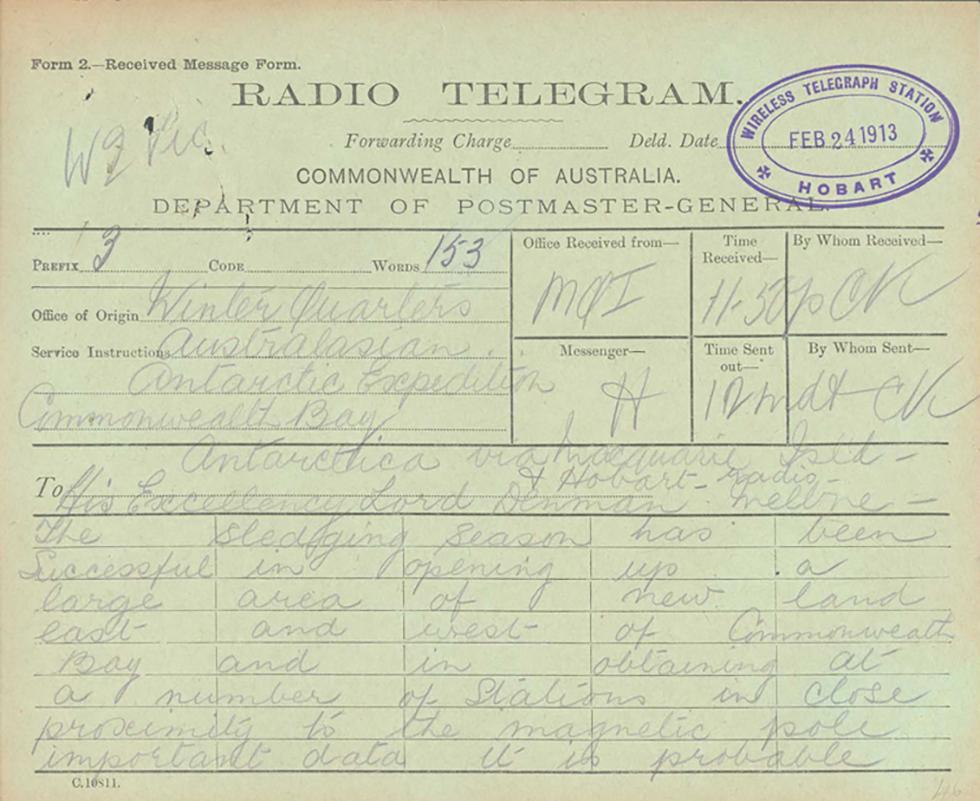 Form 2.—Received Message Form.
RADIO TELEGRAM.
Forwarding Charge Deld. Date
WIRELESS TELEGRAPH STATION
FEB 24 1913
HOBART
COMMONWEALTH OF AUSTRALIA.
DEPARTMENT OF POSTMASTER-GENERAL.
PREFIX 3 CODE WORDS 153
Office Received from—
MQI
Time Received—
11-50p
By Whom Received—
CK
Office of Origin Winter Quarters
Service Instructions Australasian
Antarctic Expedition
Commonwealth Bay
Messenger—
H
Time Sent out—
12 mdt
By Whom Sent—
CK
Antarctica via Macquarie Isld -
& Hobart - radio -
To His Excellency Lord Denman Melbne -
The sledging season has been
Successful in opening up a
large area of new land
east and west of Commonwealth
Bay and in obtaining at
a number of Stations in close
proximity to the magnetic pole
important data it is probable
C.10811.
46